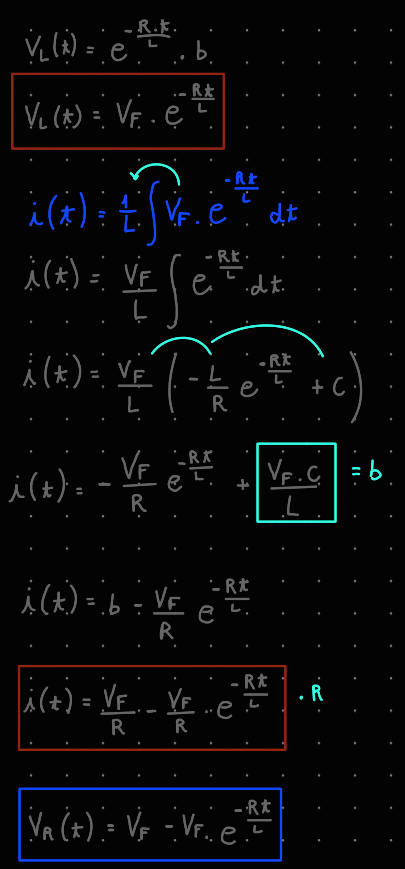 V_L(t) = e^(-R.t/L) . b
V_L(t) = V_F . e^(-Rt/L)
i(t) = 1/L ∫ V_F . e^(-Rt/L) dt
i(t) = V_F/L ∫ e^(-Rt/L) dt
i(t) = V_F/L ( - L/R e^(-Rt/L) + C )
i(t) = - V_F/R e^(-Rt/L) + V_F . C/L = b
i(t) = b - V_F/R e^(-Rt/L)
i(t) = V_F/R - V_F/R . e^(-Rt/L) . R
V_R(t) = V_F - V_F . e^(-Rt/L)